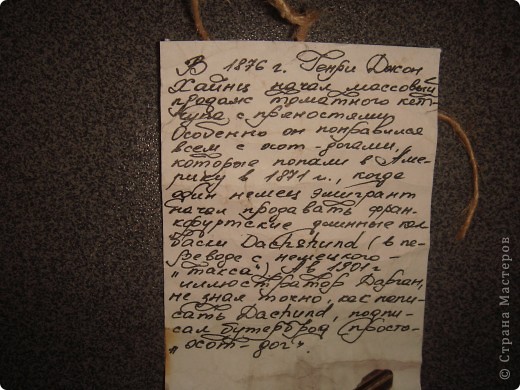 В 1876 г. Генри Джон
Хайнц начал массовый
продаж томатного кет-
чупа с пряностями.
Особенно он понравился
всем с хот-догами,
которые попали в Аме-
рику в 1871 г., когда
один немец эмигрант
начал продавать фран-
кфуртские длинные кол-
басы Dachshund (в пе-
реводе с немецкого-
"такса"). А в 1901г
иллюстратор Дорган,
не зная точно, как напи-
сать Dachund, подпи-
сал бутерброд просто-
"хот-дог".
© Страна Мастеров